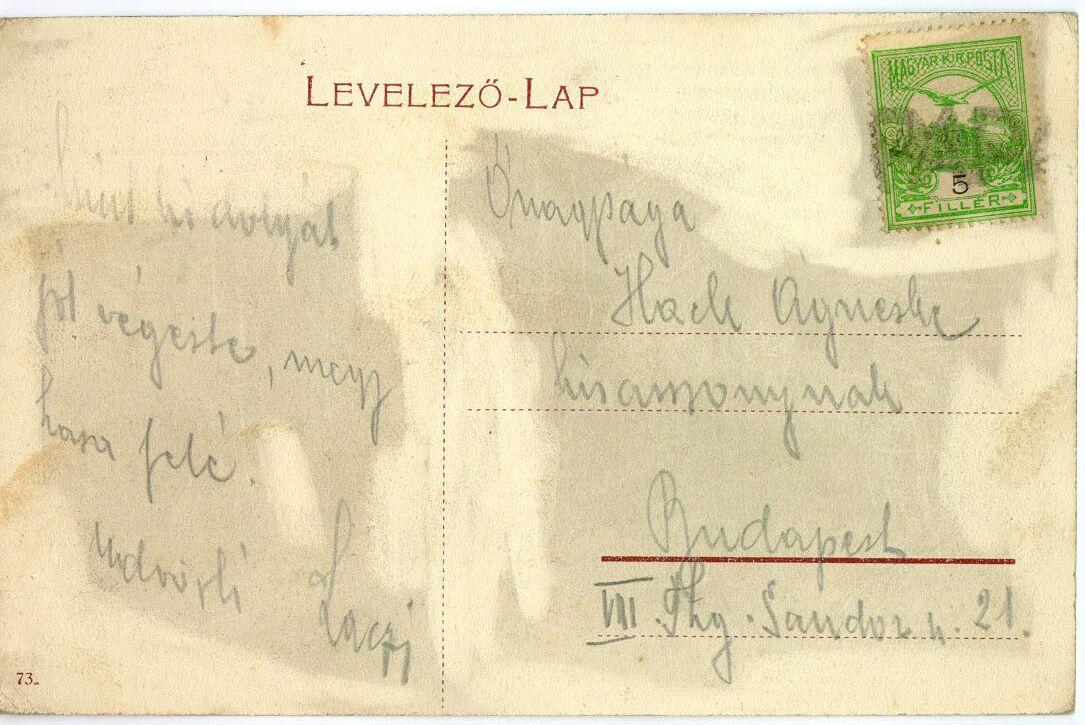 LEVELEZŐ-LAP
MAGYAR·KIR·POSTA
5
FILLÉR
mint ki dolgát
jól végezte, megy
haza felé.
Üdvözli Laczi
Őnagysága
Hack Ágneske
kisasszonynak
Budapest
VIII. Thg. Sándor u. 21.
73.